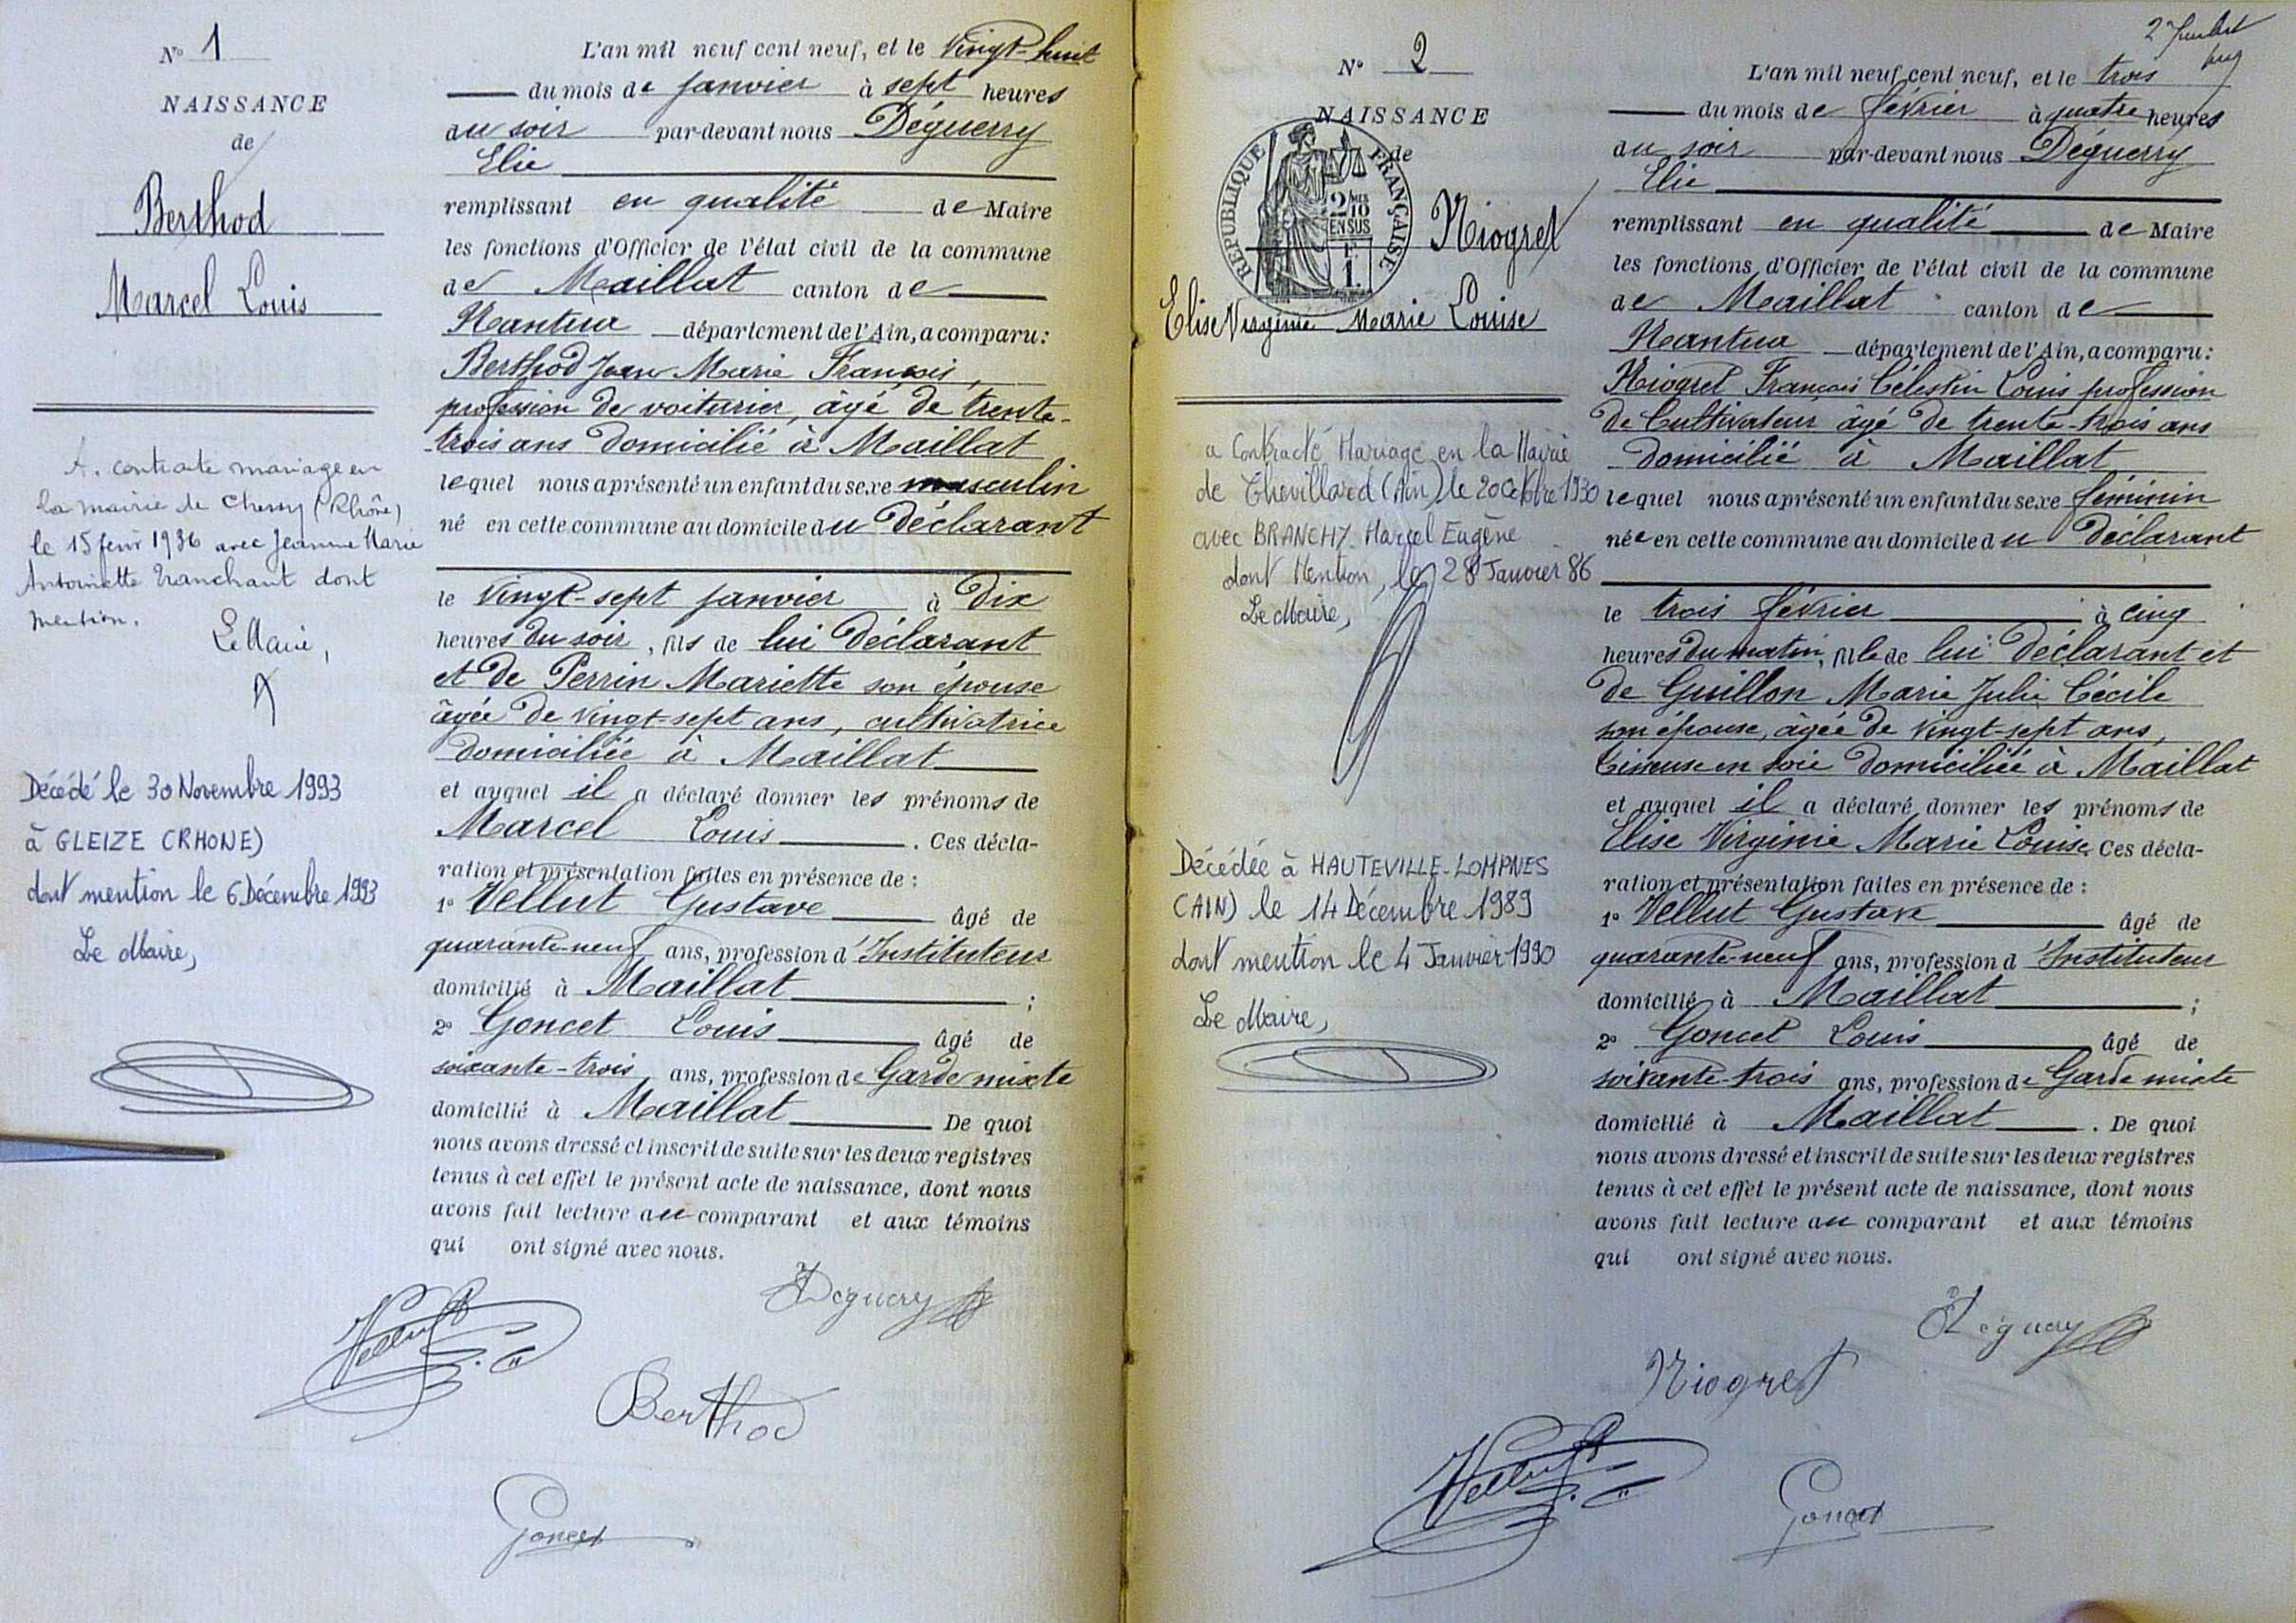 N° 1
NAISSANCE
de
Berthod
Marcel Louis
A. contracté mariage en
la mairie de Chessy (Rhône)
le 15 fevr 1936 avec Jeanne Marie
Antoinette Tranchant dont
mention.
Le Maire,
Décédé le 30 Novembre 1993
à GLEIZE (RHONE)
dont mention le 6 Décembre 1993
Le Maire,
L'an mil neuf cent neuf, et le vingt-huit
du mois de janvier à sept heures
du soir par-devant nous Déguerry
Elie
remplissant en qualité de Maire
les fonctions d'Officier de l'état civil de la commune
de Maillat canton de
Nantua département de l'Ain, a comparu :
Berthod Jean Marie François,
profession de voiturier, âgé de trente-
trois ans domicilié à Maillat
lequel nous a présenté un enfant du sexe masculin
né en cette commune au domicile du Déclarant
le vingt-sept janvier à dix
heures du soir, fils de lui Déclarant
et de Perrin Mariette son épouse
âgée de vingt-sept ans, cultivatrice
domiciliée à Maillat
et auquel il a déclaré donner les prénoms de
Marcel Louis. Ces décla-
ration et présentation faites en présence de :
1° Vellut Gustave âgé de
quarante-neuf ans, profession d'Instituteur
domicilié à Maillat ;
2° Goncet Louis âgé de
soixante-trois ans, profession de Garde mixte
domicilié à Maillat De quoi
nous avons dressé et inscrit de suite sur les deux registres
tenus à cet effet le présent acte de naissance, dont nous
avons fait lecture au comparant et aux témoins
qui ont signé avec nous.
Déguerry
Vellut
Berthod
Goncet
N° 2
NAISSANCE
de
REPUBLIQUE FRANÇAISE
2/10 EN SUS
1
Niogret
Elise Virginie Marie Louise
a Contracté Mariage en la Mairie
de Chevillard (Ain) le 20 Octobre 1930
avec BRANCHY Marcel Eugène
dont Mention, le 28 Janvier 86
Le Maire,
Décédée à HAUTEVILLE-LOMPNES
(AIN) le 14 Décembre 1989
dont mention le 4 Janvier 1990
Le Maire,
L'an mil neuf cent neuf, et le trois
du mois de février à quatre heures
du soir par-devant nous Déguerry
Elie
remplissant en qualité de Maire
les fonctions d'Officier de l'état civil de la commune
de Maillat canton de
Nantua département de l'Ain, a comparu :
Niogret François Célestin Louis profession
de Cultivateur âgé de trente-trois ans
domicilié à Maillat
lequel nous a présenté un enfant du sexe féminin
née en cette commune au domicile du Déclarant
le trois février à cinq
heures du matin, fille de lui Déclarant et
de Guillon Marie Julie Cécile
son épouse, âgée de vingt-sept ans,
tisseuse en soie domiciliée à Maillat
et auquel il a déclaré donner les prénoms de
Elise Virginie Marie Louise. Ces décla-
ration et présentation faites en présence de :
1° Vellut Gustave âgé de
quarante-neuf ans, profession d'Instituteur
domicilié à Maillat ;
2° Goncet Louis âgé de
soixante-trois ans, profession de Garde mixte
domicilié à Maillat. De quoi
nous avons dressé et inscrit de suite sur les deux registres
tenus à cet effet le présent acte de naissance, dont nous
avons fait lecture au comparant et aux témoins
qui ont signé avec nous.
Déguerry
Niogret
Vellut
Goncet